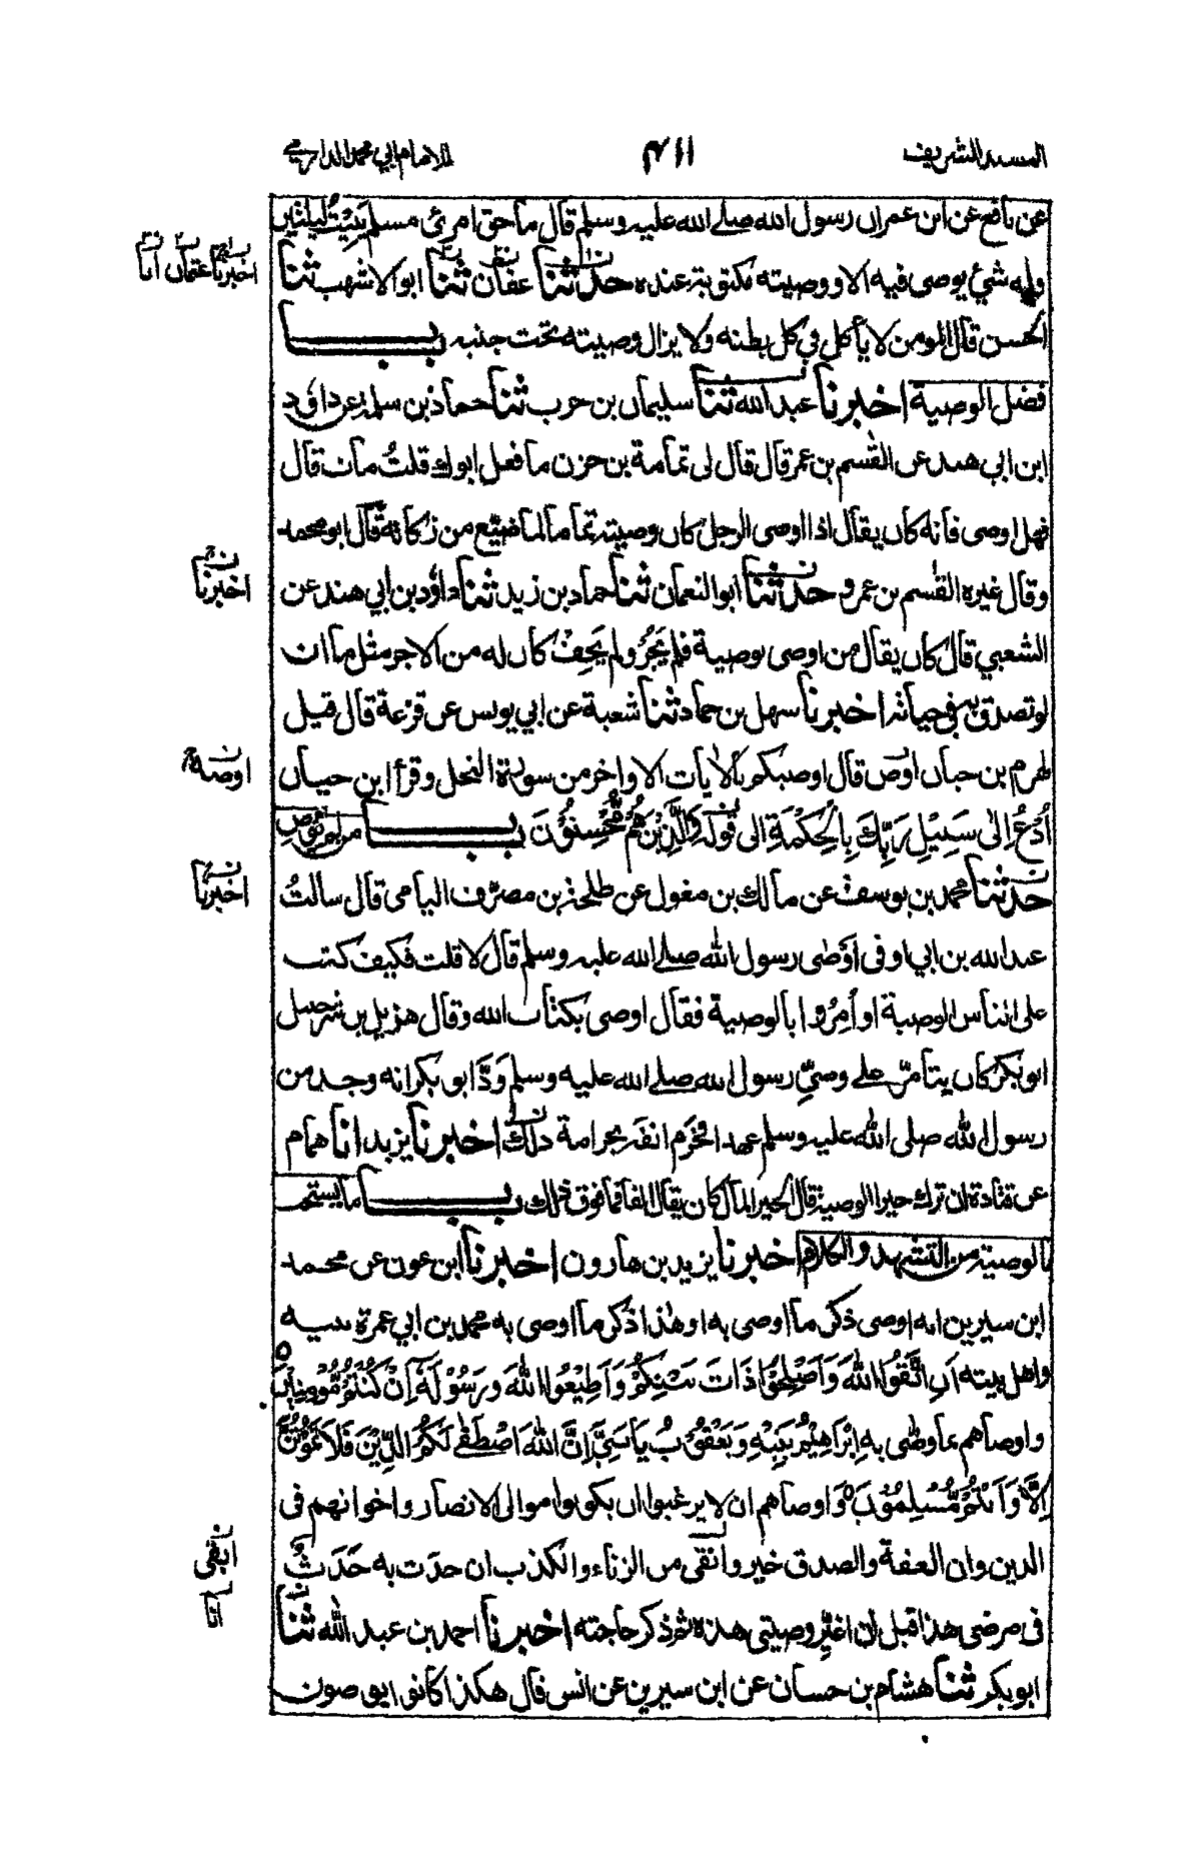 المسند الشريف
٤١١
للامام ابي محمد الدارمي
عن نافع عن ابن عمر ان رسول الله صلے الله عليه وسلم قال ما حق امرئ مسلم يَبِيْتُ ليلتين
وله شئ يوصى فيه الا ووصيته مكتوبة عنده حدثنا عفان ثنا ابو الاشهب ثنا
اخبرنا عفان انا
الحسن قال المومن لا يأكل في كل بطنه ولا يزال وصيته تحت جنبه باب
فضل الوصية اخبرنا عبد الله ثنا سليمان بن حرب ثنا حماد بن سلمة عن داؤد
ابن ابي هند عن القٰسم بن عمر قال قال لى ثمامة بن حزن ما فعل ابوك قلتُ مات قال
فهل اوصى فانه كان يقال اذا اوصى الرجل كان وصيته تماما لما ضيّع من زكاته قال ابو محمد
وقال غيره القٰسم بن عمرو حدثنا ابو النعمان ثنا حماد بن زيد ثنا داؤد بن ابي هند عن
اخبرنا
الشعبي قال كان يقال من اوصى بوصية فلم يَجُرْ ولم يَحِفْ كان له من الاجر مثل ما ان
لو تصدق به في حياته اخبرنا سهل بن حماد ثنا شعبة عن ابي يونس عن قزعة قال قيل
لهرم بن حيان اوص قال اوصيكم بالاٰيات الاواخر من سورة النحل وقرأ ابن حيان
اوصه
اُدْعُ اِلىٰ سَبِيْلِ رَبِّكَ بِالْحِكْمَةِ الى قوله وَالَّذِيْنَ هُمْ مُّحْسِنُوْنَ باب من لم يوص
حدثنا محمد بن يوسف عن مالك بن مغول عن طلحة بن مصرّف اليامى قال سالتُ
اخبرنا
عبد الله بن ابي اوفى اَوْصٰى رسول الله صلے الله عليه وسلم قال لا قلت فكيف كتب
على الناس الوصية او اُمِرُوا بالوصية فقال اوصى بكتاب الله وقال هزيل بن شرحبيل
ابو بكر كان يتأمّر على وصيِّ رسول الله صلے الله عليه وسلم وَدَّ ابو بكر انه وجد من
رسول الله صلى الله عليه وسلم عهدا فخزم انفه بخزامة ذلك اخبرنا يزيد انا همام
عن قتادة ان ترك خيرا الوصية قال الخير المال كان يقال الفا فما فوق ذلك باب ما يستحب
بالوصية من التشهد والكلام اخبرنا يزيد بن هارون اخبرنا ابن عون عن محمد
ابن سيرين انه اوصى ذكر ما اوصى به او هذا ذكر ما اوصى به محمد بن ابي عمرة بنيه
واهل بيته اَنِ اتَّقُوا اللهَ وَاَصْلِحُوْا ذَاتَ بَيْنِكُمْ وَاَطِيْعُوا اللهَ وَرَسُوْلَهٗ اِنْ كُنْتُمْ مُّؤْمِنِيْنَ
واوصاهم بما وصٰى بهٖ اِبْرَاهِيْمُ بَنِيْهِ وَيَعْقُوْبُ يَا بَنِيَّ اِنَّ اللهَ اصْطَفٰى لَكُمُ الدِّيْنَ فَلَا تَمُوْتُنَّ
اِلَّا وَاَنْتُمْ مُّسْلِمُوْنَ ٥ وَاوصاهم ان لا يرغبوا ان يكونوا موالى الانصار واخوانهم فى
الدين وان العفة والصدق خير وانقى من الزناء والكذب ان حدث به حَدَثٌ
ابقى
فى مرضى هذا قبل ان اغيّر وصيتى هذه ثم ذكر حاجته اخبرنا احمد بن عبد الله ثنا
انا
ابو بكر ثنا هشام بن حسان عن ابن سيرين عن انس قال هكذا كانوا يوصون